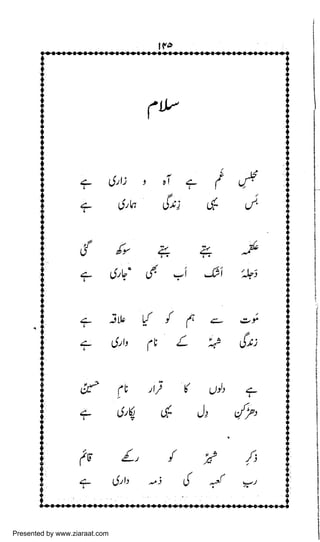 ۱۲۵
سلام
مجلسِ غم ہے آہ و زاری ہے
بس یہی زندگی ہماری ہے
علقمہ بہتے بہتے سوکھ گئی
دجلۂ اشک اب بھی جاری ہے
موت سے ہم کو کیا علاقہ ہے
زندگی شہؑ کے نام واری ہے
ہے دلوں کا قرار نامِ حسینؑ
دھڑکنِ دل یہی پکاری ہے
ذکرِ شبیرؑ کو رکھے قائم
ربِ کعبہ کی ذمہ داری ہے
Presented by www.ziaraat.com